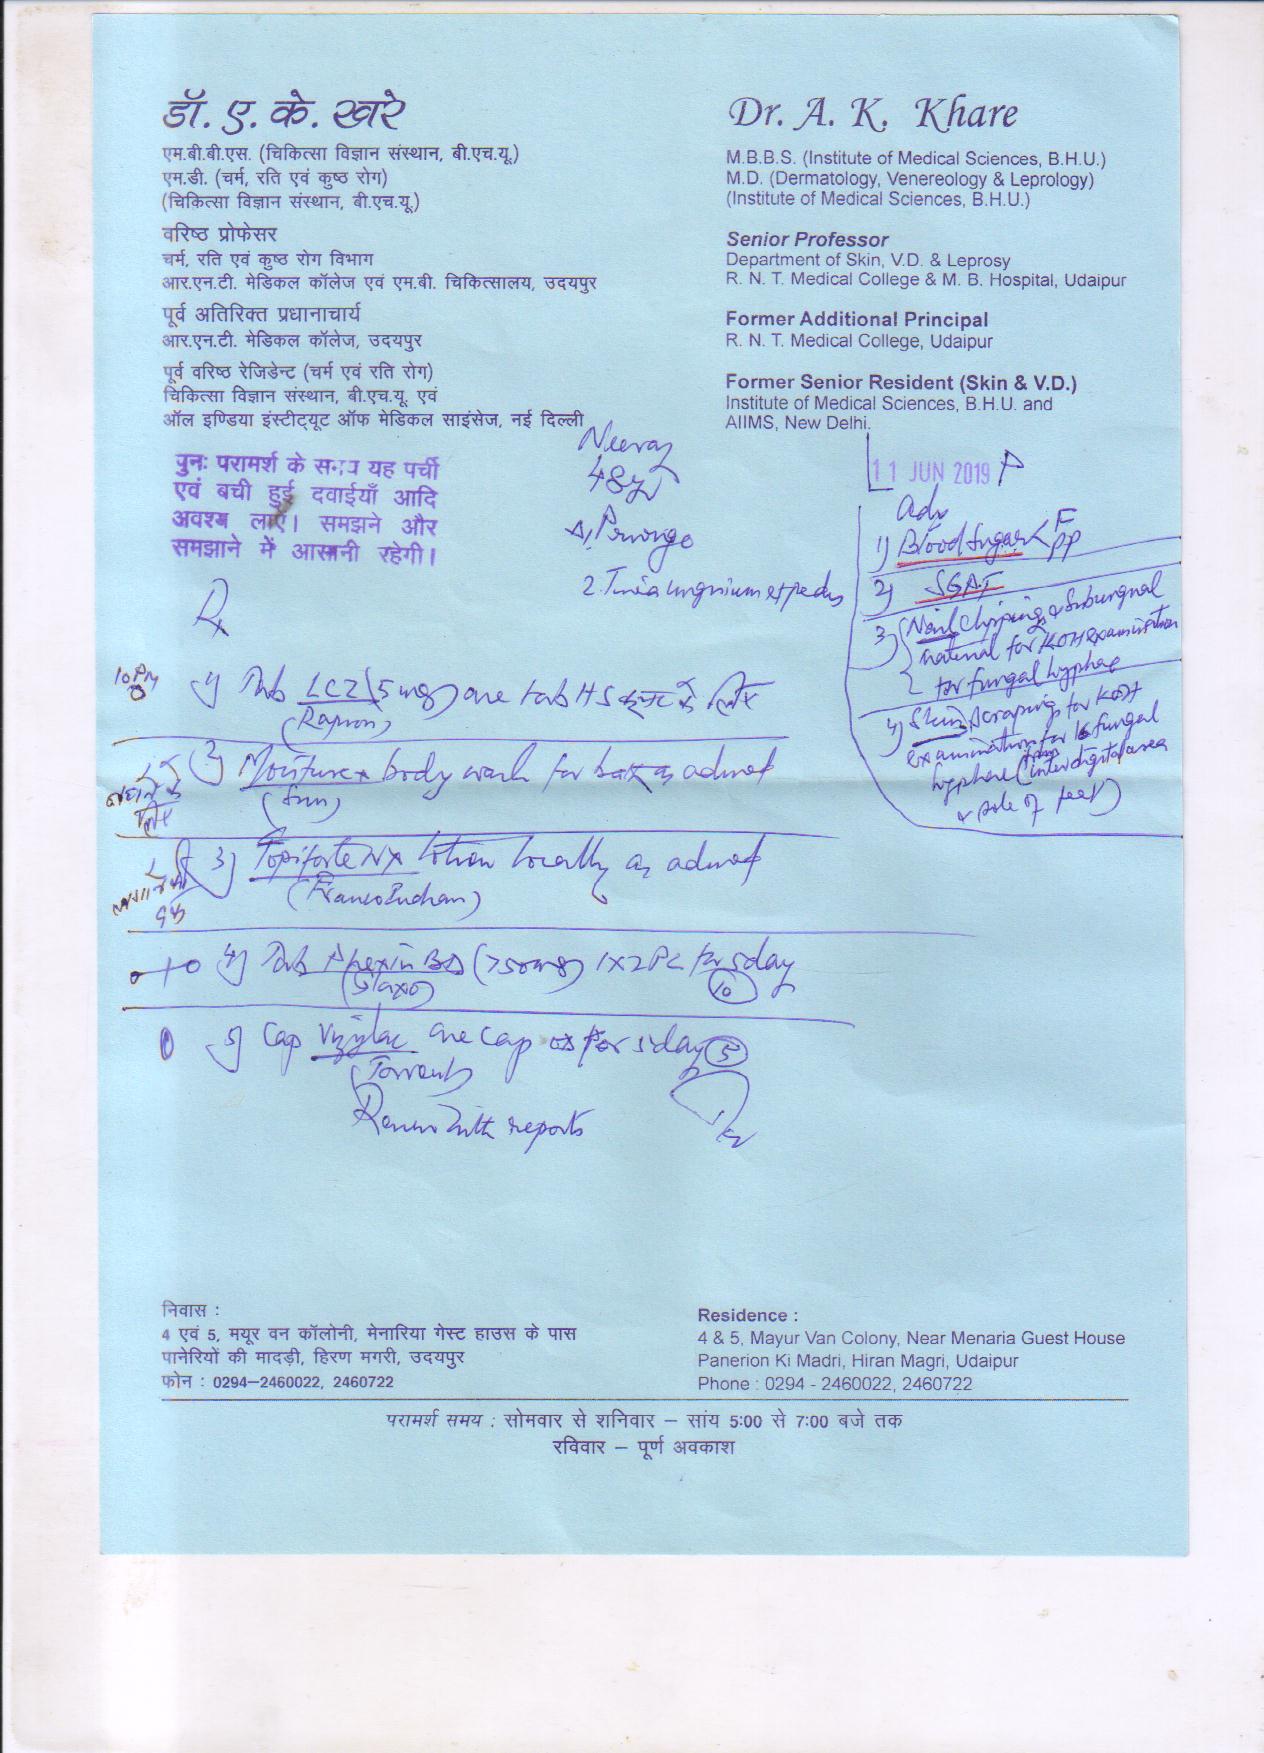 डॉ. ए. के. खरे
एम.बी.बी.एस. (चिकित्सा विज्ञान संस्थान, बी.एच.यू.)
एम.डी. (चर्म, रति एवं कुष्ठ रोग)
(चिकित्सा विज्ञान संस्थान, बी.एच.यू.)
वरिष्ठ प्रोफेसर
चर्म, रति एवं कुष्ठ रोग विभाग
आर.एन.टी. मेडिकल कॉलेज एवं एम.बी. चिकित्सालय, उदयपुर
पूर्व अतिरिक्त प्रधानाचार्य
आर.एन.टी. मेडिकल कॉलेज, उदयपुर
पूर्व वरिष्ठ रेजिडेन्ट (चर्म एवं रति रोग)
चिकित्सा विज्ञान संस्थान, बी.एच.यू. एवं
ऑल इण्डिया इंस्टीट्यूट ऑफ मेडिकल साइंसेज, नई दिल्ली
Dr. A. K. Khare
M.B.B.S. (Institute of Medical Sciences, B.H.U.)
M.D. (Dermatology, Venereology & Leprology)
(Institute of Medical Sciences, B.H.U.)
Senior Professor
Department of Skin, V.D. & Leprosy
R. N. T. Medical College & M. B. Hospital, Udaipur
Former Additional Principal
R. N. T. Medical College, Udaipur
Former Senior Resident (Skin & V.D.)
Institute of Medical Sciences, B.H.U. and
AIIMS, New Delhi.
पुनः परामर्श के समय यह पर्ची
एवं बची हुई दवाईयाँ आदि
अवश्य लाऐं। समझने और
समझाने में आसानी रहेगी।
Neeraj
48y
2. Tinea unguium et pedis
11 JUN 2019
Adv
1) Blood Sugar < F PP
2) SGPT
3) Nail clipping & subungual
material for KOH examination
for fungal hyphae
4) Skin scrapings for KOH
examination for fungal
hyphae (interdigital area
& sole of feet)
Rx
10 PM
1) Tab LCZ (5 mg) one tab HS
2) Moisturex body wash for bath as advised
(Sun)
नहाने के
लिए
3) Topiforte NX lotion locally as advised
(Franco Indian)
4) Tab Phexin BD (750mg) 1x2 PC for 5 day
(Glaxo) 10
5) Cap Vizylac one cap OD for 5 day 5
(Torrent)
Review with reports
निवास :
4 एवं 5, मयूर वन कॉलोनी, मेनारिया गेस्ट हाउस के पास
पानेरियों की मादड़ी, हिरण मगरी, उदयपुर
फोन : 0294–2460022, 2460722
Residence :
4 & 5, Mayur Van Colony, Near Menaria Guest House
Panerion Ki Madri, Hiran Magri, Udaipur
Phone : 0294 - 2460022, 2460722
परामर्श समय : सोमवार से शनिवार – सांय 5:00 से 7:00 बजे तक
रविवार – पूर्ण अवकाश